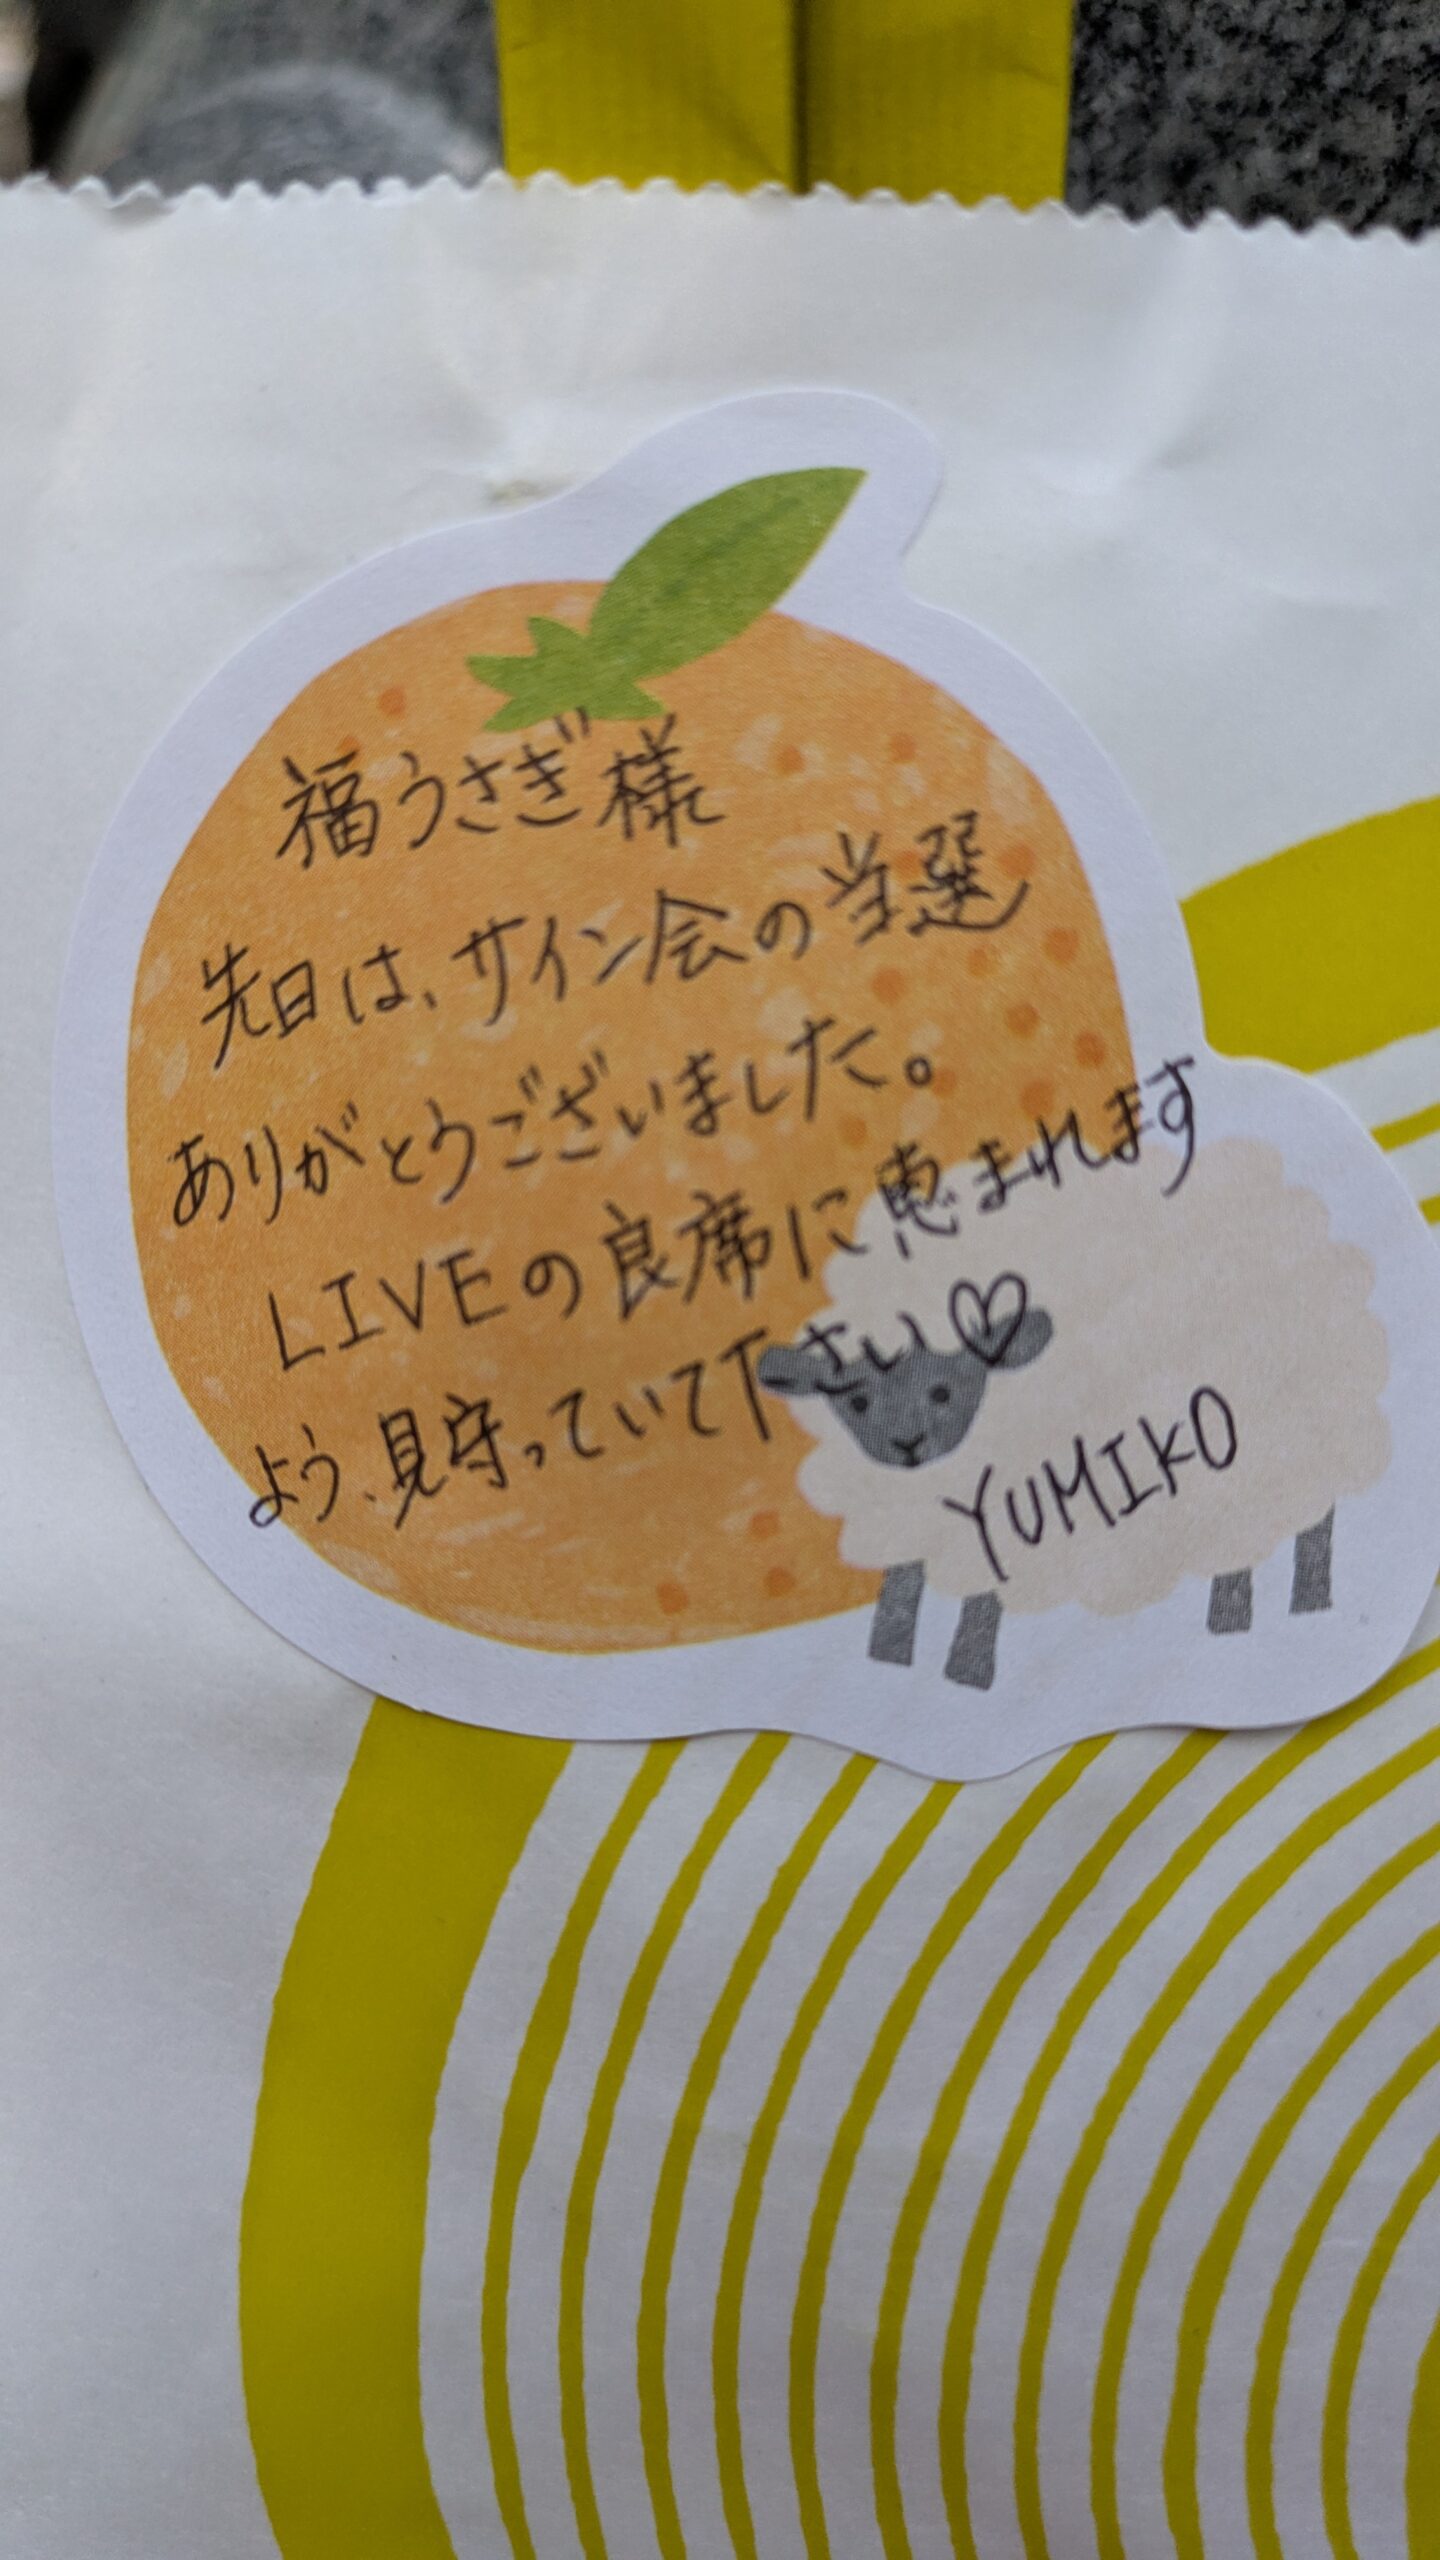 福うさぎ様
先日は、サイン会の当選
ありがとうございました。
LIVEの良席に恵まれます
よう、見守っていて下さい♡
YUMIKO